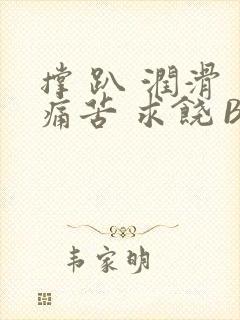 撑 趴 潤滑
痛苦 求饒 B
韦家明